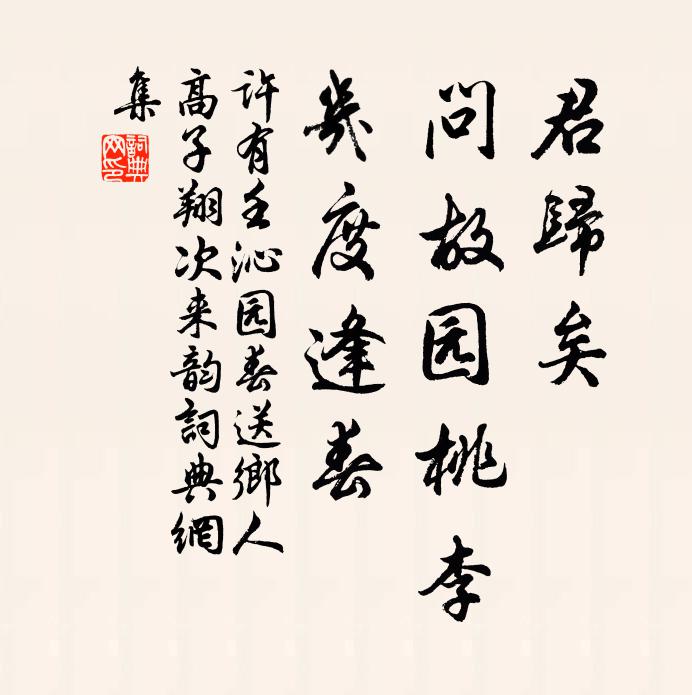 君歸矣
问故园桃李
幾度逢春
许有壬沁园春送鄉人
高子翔次来韵詞典網
集
詞典網印